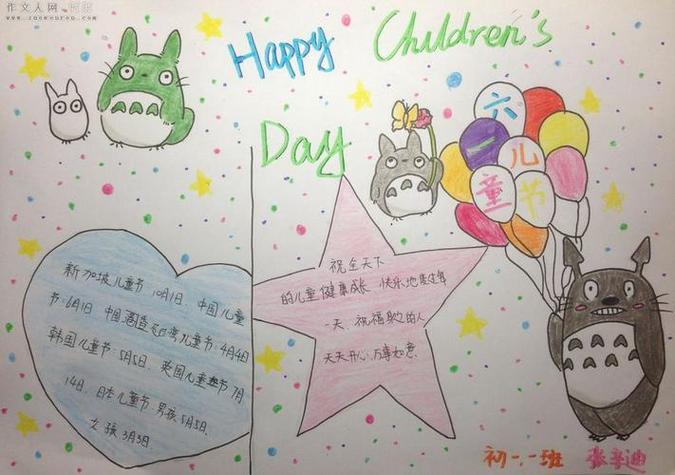 作文人网
www.zuowenren.com
Happy Children's
Day
六
一儿
童节
新加坡儿童节10月1日、中国儿童
节:6月1日 中国 儿童节:4月4日
韩国儿童节:5月5日、英国儿童节7月
14日、日本儿童节:男孩5月5日、
女孩3月3日、
祝全天下
的儿童健康成长 快乐地度过年
一天、祝福 的人
天天开心,万事如意、
初一.一班 张 迪